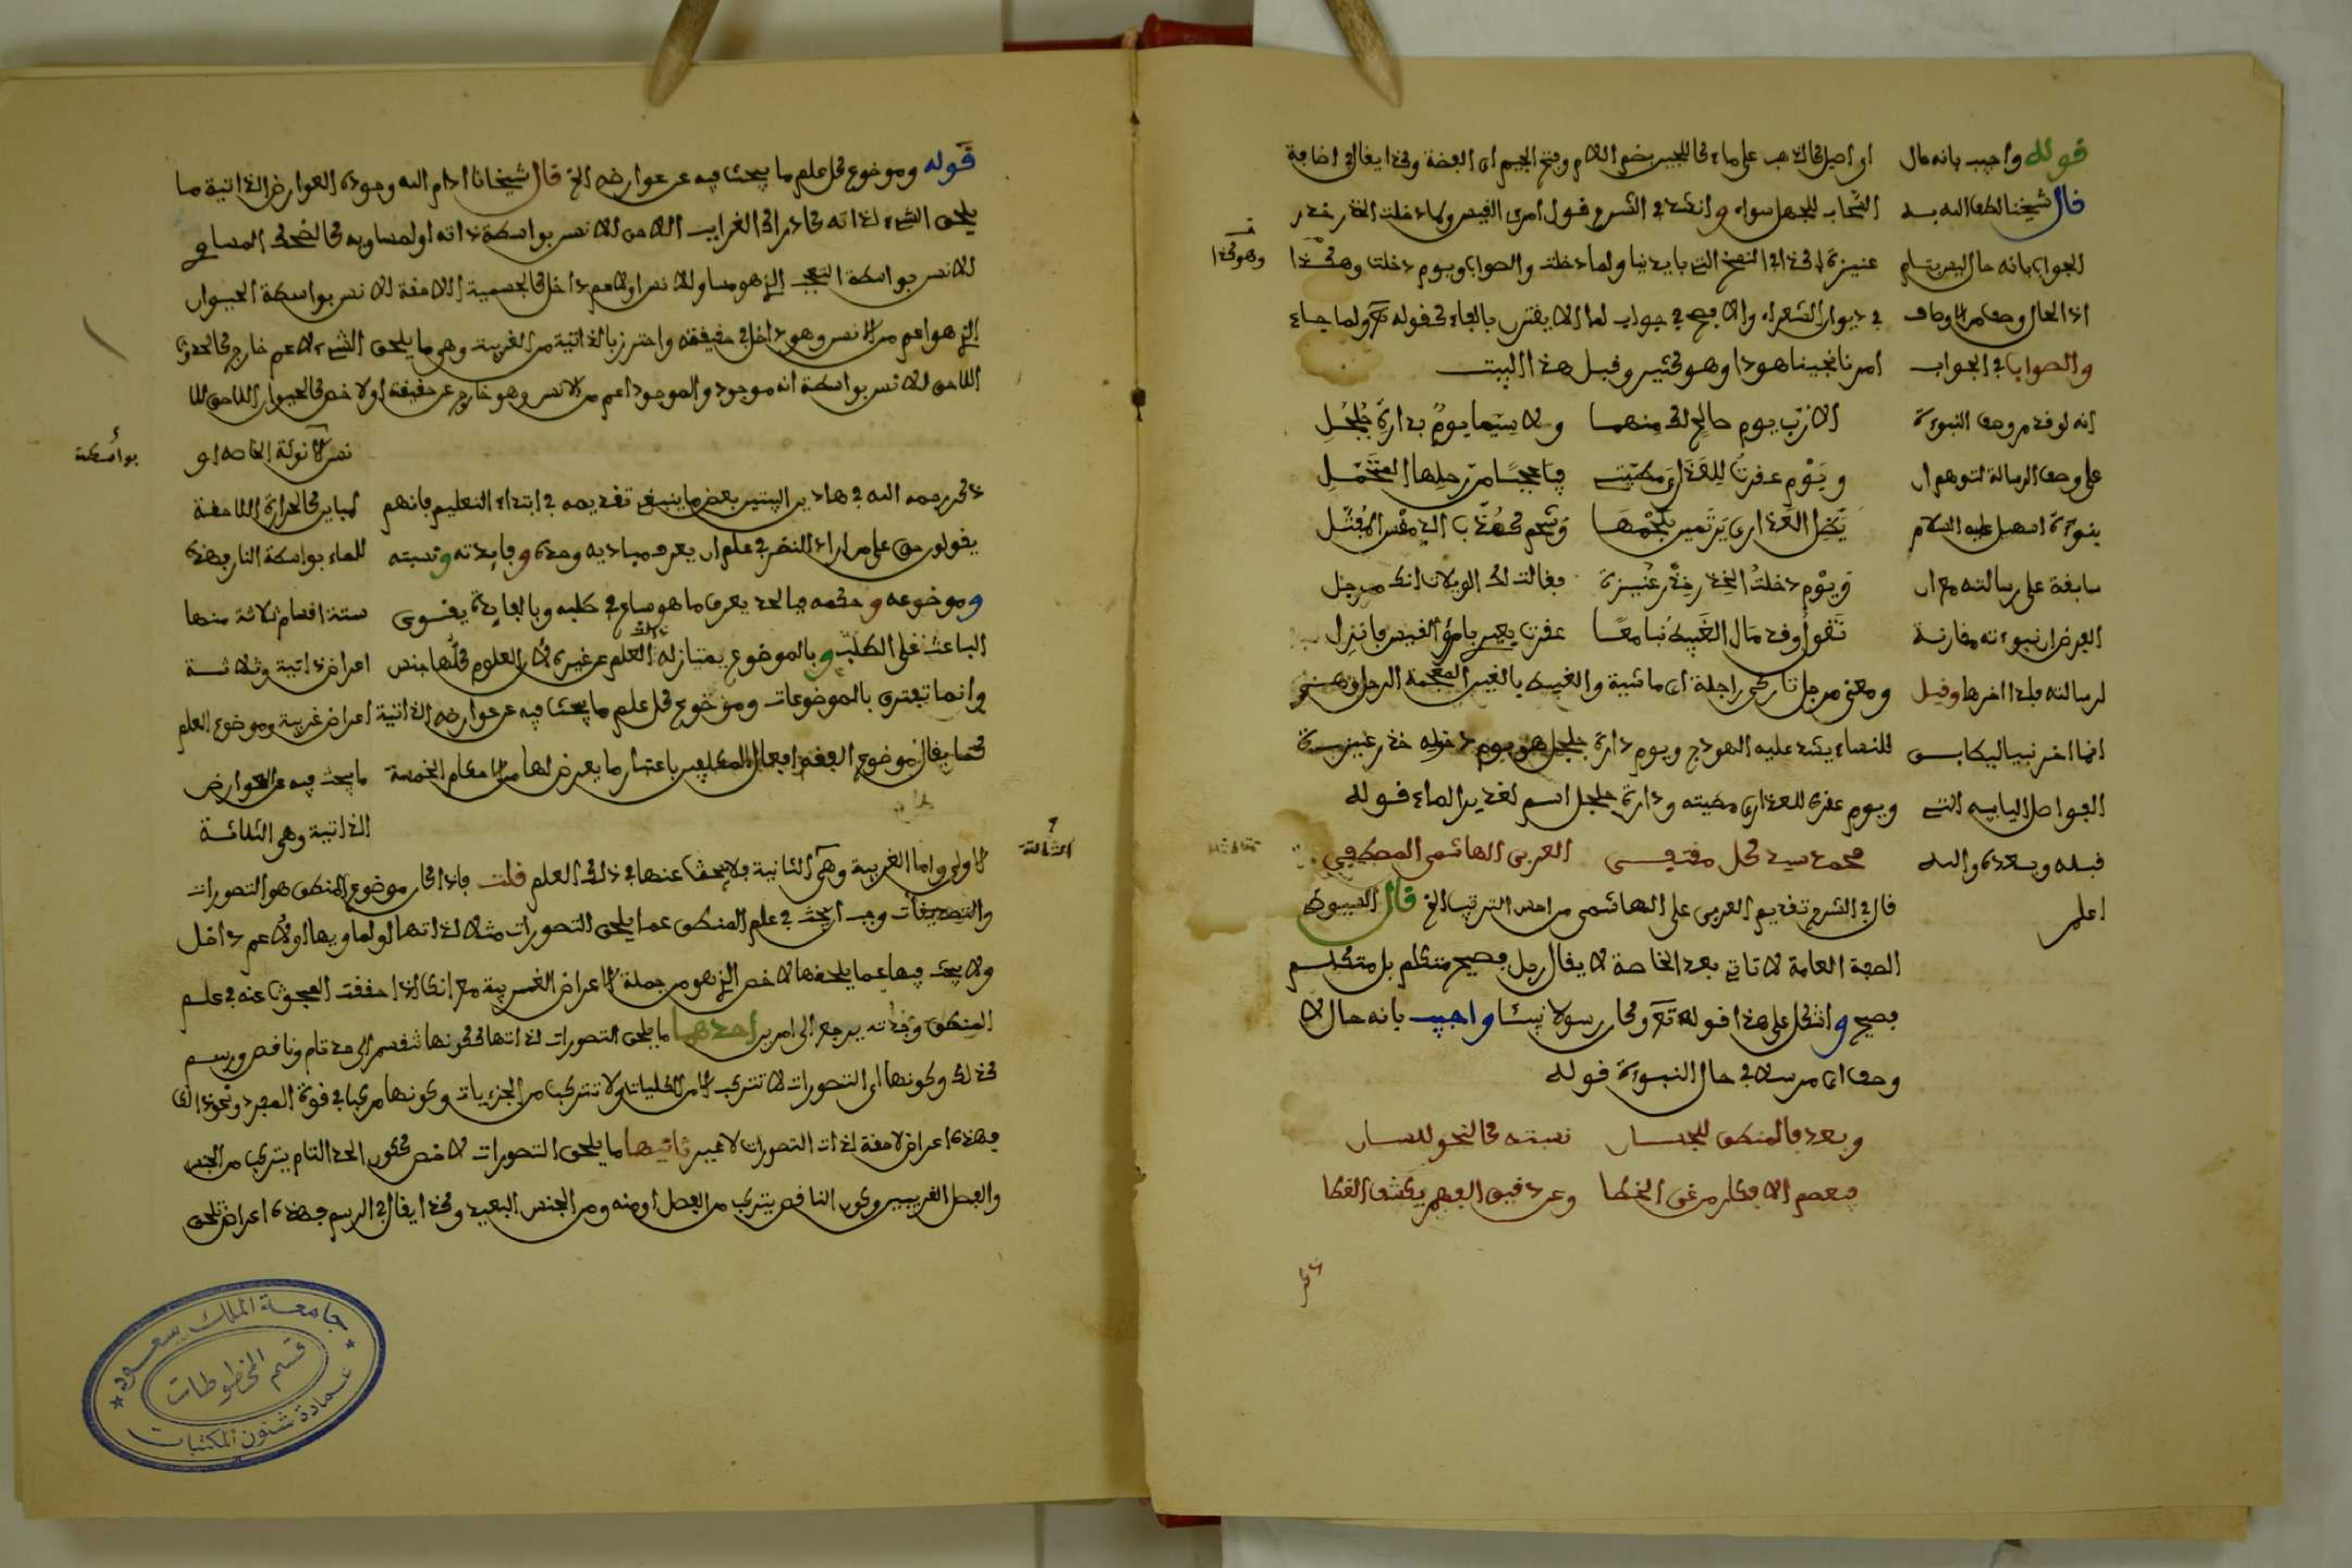 قوله واجيب بانه حال
قال شيخنا لطف الله به
الجواب بانه حال ليس بتام
اذ الحال وصف من الاوصاف
والصواب في الجواب
انه لو قدم وصف النبوءة
على وصف الرسالة لتوهم ان
نبوءة اسمعيل عليه السلام
سابقة على رسالته مع ان
الغرض ان نبوءته مقارنة
لرسالته فلذا اخرها وقيل
انما اخر نبيا ليطابق
الفواصل اليايية التي
قبله وبعده والله
اعلم
او اصيل كالذهب على ماء كاللجين بضم اللام وفتح الجيم اي الفضة وكذا يقال في اضافة
السحاب للجهل سواء وانشد في الشرح قول امرئ القيس ولما دخلت الخدر خدر
عنيزة كذا في النسخ التي بايدينا ولما دخلت والصواب ويوم دخلت وهكذا
وهو كذا
في ديوان الشعراء والافصح في جواب لما الا يقترن بالفاء كقوله تعالى ولما جاء
امرنا نجينا هودا وهو كثير وقبل هذا البيت
الا رب يوم صالح لك منهما ولا سيما يوم بدارة جلجل
ويوم عقرت للعذارى مطيتي فيا عجبا من رحلها المتحمل
يظل العذارى يرتمين بلحمها وشحم كهداب الدمقس المفتل
ويوم دخلت الخدر خدر عنيزة فقالت لك الويلات انك مرجل
تقول وقد مال الغبيط بنا معا عقرت بعيري يا امرؤ القيس فانزل
ومعنى مرجل تاركي راجلة اي ماشية والغبيط بالغين المعجمة الرحل وهو
للنساء يشد عليه الهودج ويوم دارة جلجل هو يوم دخوله خدر عنيزة
ويوم عقره للعذارى مطيته ودارة جلجل اسم لغدير الماء قوله
محمد سيد كل مقتفى العربي الهاشمي المصطفى
قال في الشرح تقديم العربي على الهاشمي من احسن الترتيب الخ قال السيوطي
الصفة العامة لا تاتي بعد الخاصة لا يقال رجل فصيح متكلم بل متكلم
فصيح واشكل على هذا قوله تعالى وكان رسولا نبيئا واجيب بانه حال لا
وصف اي مرسلا في حال النبوءة قوله
وبعد فالمنطق للجنان نسبته كالنحو للسان
فيعصم الافكار عن غي الخطا وعن دقيق الفهم يكشف الغطا
قوله وموضوع كل علم ما يبحث فيه عن عوارضه الخ قال شيخنا ادام الله وجوده العوارض الذاتية ما
يلحق الشيء لذاته كادراك الغرايب اللاحق للانسان بواسطة ذاته او لمساويه كالضحك المساوي
للانسان بواسطة التعجب الذي هو مساو للانسان او لاعم داخل كالجسمية اللاحقة للانسان بواسطة الحيوان
الذي هو اعم من الانسان وهو داخل في حقيقته واحترز بالذاتية من الغريبة وهو ما يلحق الشيء لاعم خارج كالحدوث
اللاحق للانسان بواسطة انه موجود والموجود اعم من الانسان وهو خارج عن حقيقته او لاخص كالحيوان اللاحق للا
بواسطة
نسان الانوثة الخاصة او
لمباين كالحرارة اللاحقة
للماء بواسطة النار فهذه
ستة اقسام ثلاثة منها
اعراض ذاتية وثلاثة
اعراض غريبة وموضوع العلم
ما يبحث فيه عن العوارض
الذاتية وهي الثلاثة
ذكر رحمه الله في هاذين البيتين بعض ما ينبغي تقديمه في ابتداء التعليم فانهم
يقولون حق على من اراد النضر في علم ان يعرف مباديه وحده وفايدته ونسبته
وموضوعه وحكمه فبالحد يعرف ما هو ساع في طلبه وبالفايدة يقوى
الباعث على الطلب وبالموضوع يمتاز له ذلك العلم عن غيره لان العلوم كلها جنس
وانما تفترق بالموضوعات وموضوع كل علم ما يبحث فيه عن عوارضه الذاتية
كما يقال موضوع الفقه افعال المكلفين باعتبار ما يعرض لها من الاحكام الخمسة
الثالثة
الاولى واما الغريبة وهي الثانية فلا يبحث عنها في ذلك العلم قلت فاذا كان موضوع المنطق هو التصورات
والتصديقات وجب ان يبحث في علم المنطق عما يلحق التصورات مثلا لذاتها او لما ويها او لاعم داخل
ولا يبحث فيها عما يلحقها لاخص الذي هو من جملة الاعراض الغريبة مع انك اذا حققت المبحوث عنه في علم
المنطق وجدته يرجع الى امرين احدهما ما يلحق التصورات لذاتها ككونها تنقسم الى حد تام وناقص ورسم
كذلك وكونها اي التصورات لا تتركب الا من الكليات ولا تتركب من الجزييات وكونها مركبا في قوة المفرد ونحو ذلك
فهذه اعراض لاحقة لذات التصورات لا غير ثانيهما ما يلحق التصورات لاخص ككون الحد التام يتركب من الجنس
والفصل القريبين وكون الناقص يتركب من الفصل او منه ومن الجنس البعيد وكذا يقال في الرسم فهذه اعراض تلحق
جامعة الملك سعود
قسم المخطوطات
عمادة شئون المكتبات